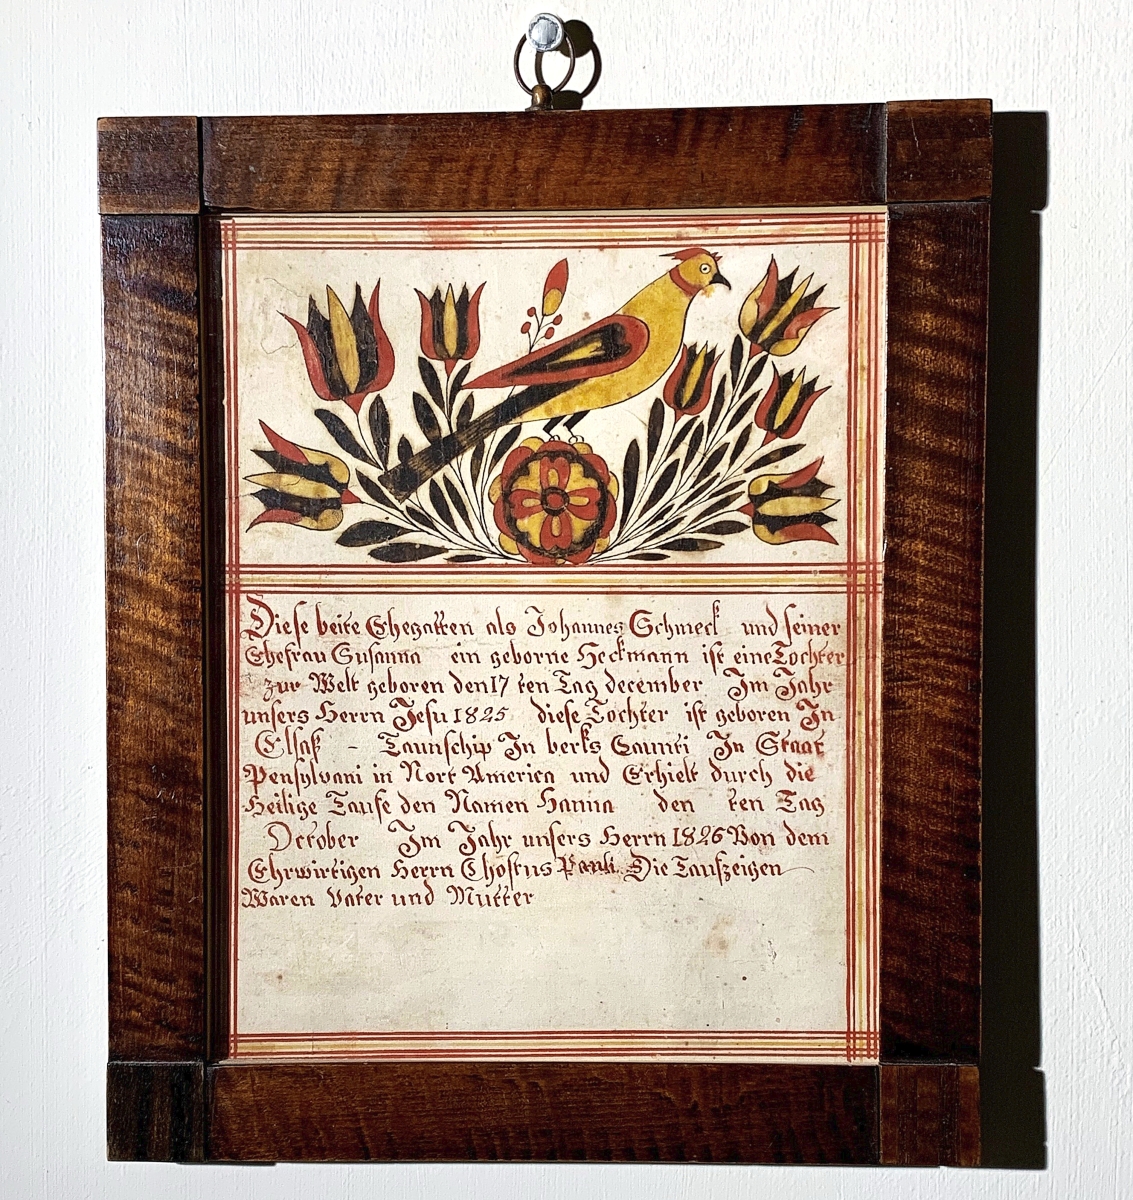 Diese beite Ehegatten als Johannes Schmeck und seiner
Ehefrau Susanna ein geborne Heckmann ist eine Tochter
zur Welt geboren den 17 ten Tag december Im Jahr
unsers Herrn Jesu 1825 diese Tochter ist geboren In
Elsaß - Taunschip In berks Caunti In Staat
Pensylvani in Nort America und Erhielt durch die
Heilige Taufe den Namen Hanna den ten Tag
October Im Jahr unsers Herrn 1826 Von dem
Ehrwirtigen Herrn Die Taufzeigen
Waren Vater und Mutter